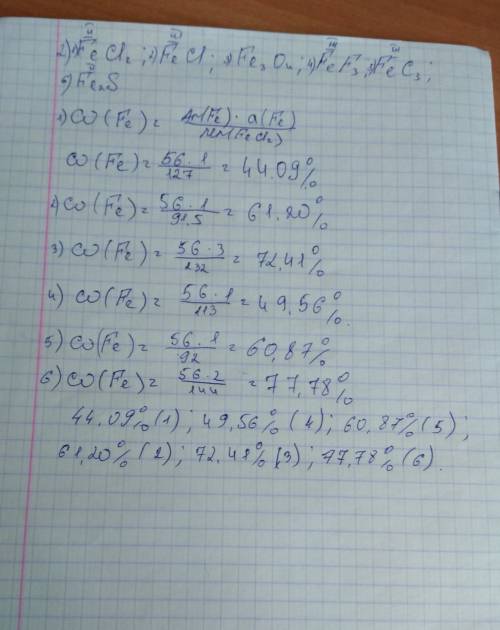 2) 1) Fe Cl₂ ; 2) Fe Cl ; 3) Fe₃O₄ ; 4) Fe F₃ ; 5) Fe C₃ ;
6) Fe₂S
1) ω(Fe) = Ar(Fe) · a(Fe) / Mr(FeCl₂)
ω(Fe) = 56 · 1 / 127 = 44.09%
2) ω(Fe) = 56 · 1 / 91,5 = 61,20%
3) ω(Fe) = 56 · 3 / 232 = 72,41%
4) ω(Fe) = 56 · 1 / 113 = 49,56%.
5) ω(Fe) = 56 · 1 / 92 = 60,87%
6) ω(Fe) = 56 · 2 / 144 = 77,78%
44.09% (1) ; 49,56% (4) ; 60,87% (5) ;
61,20% (2) ; 72,41% (3) ; 77,78% (6).